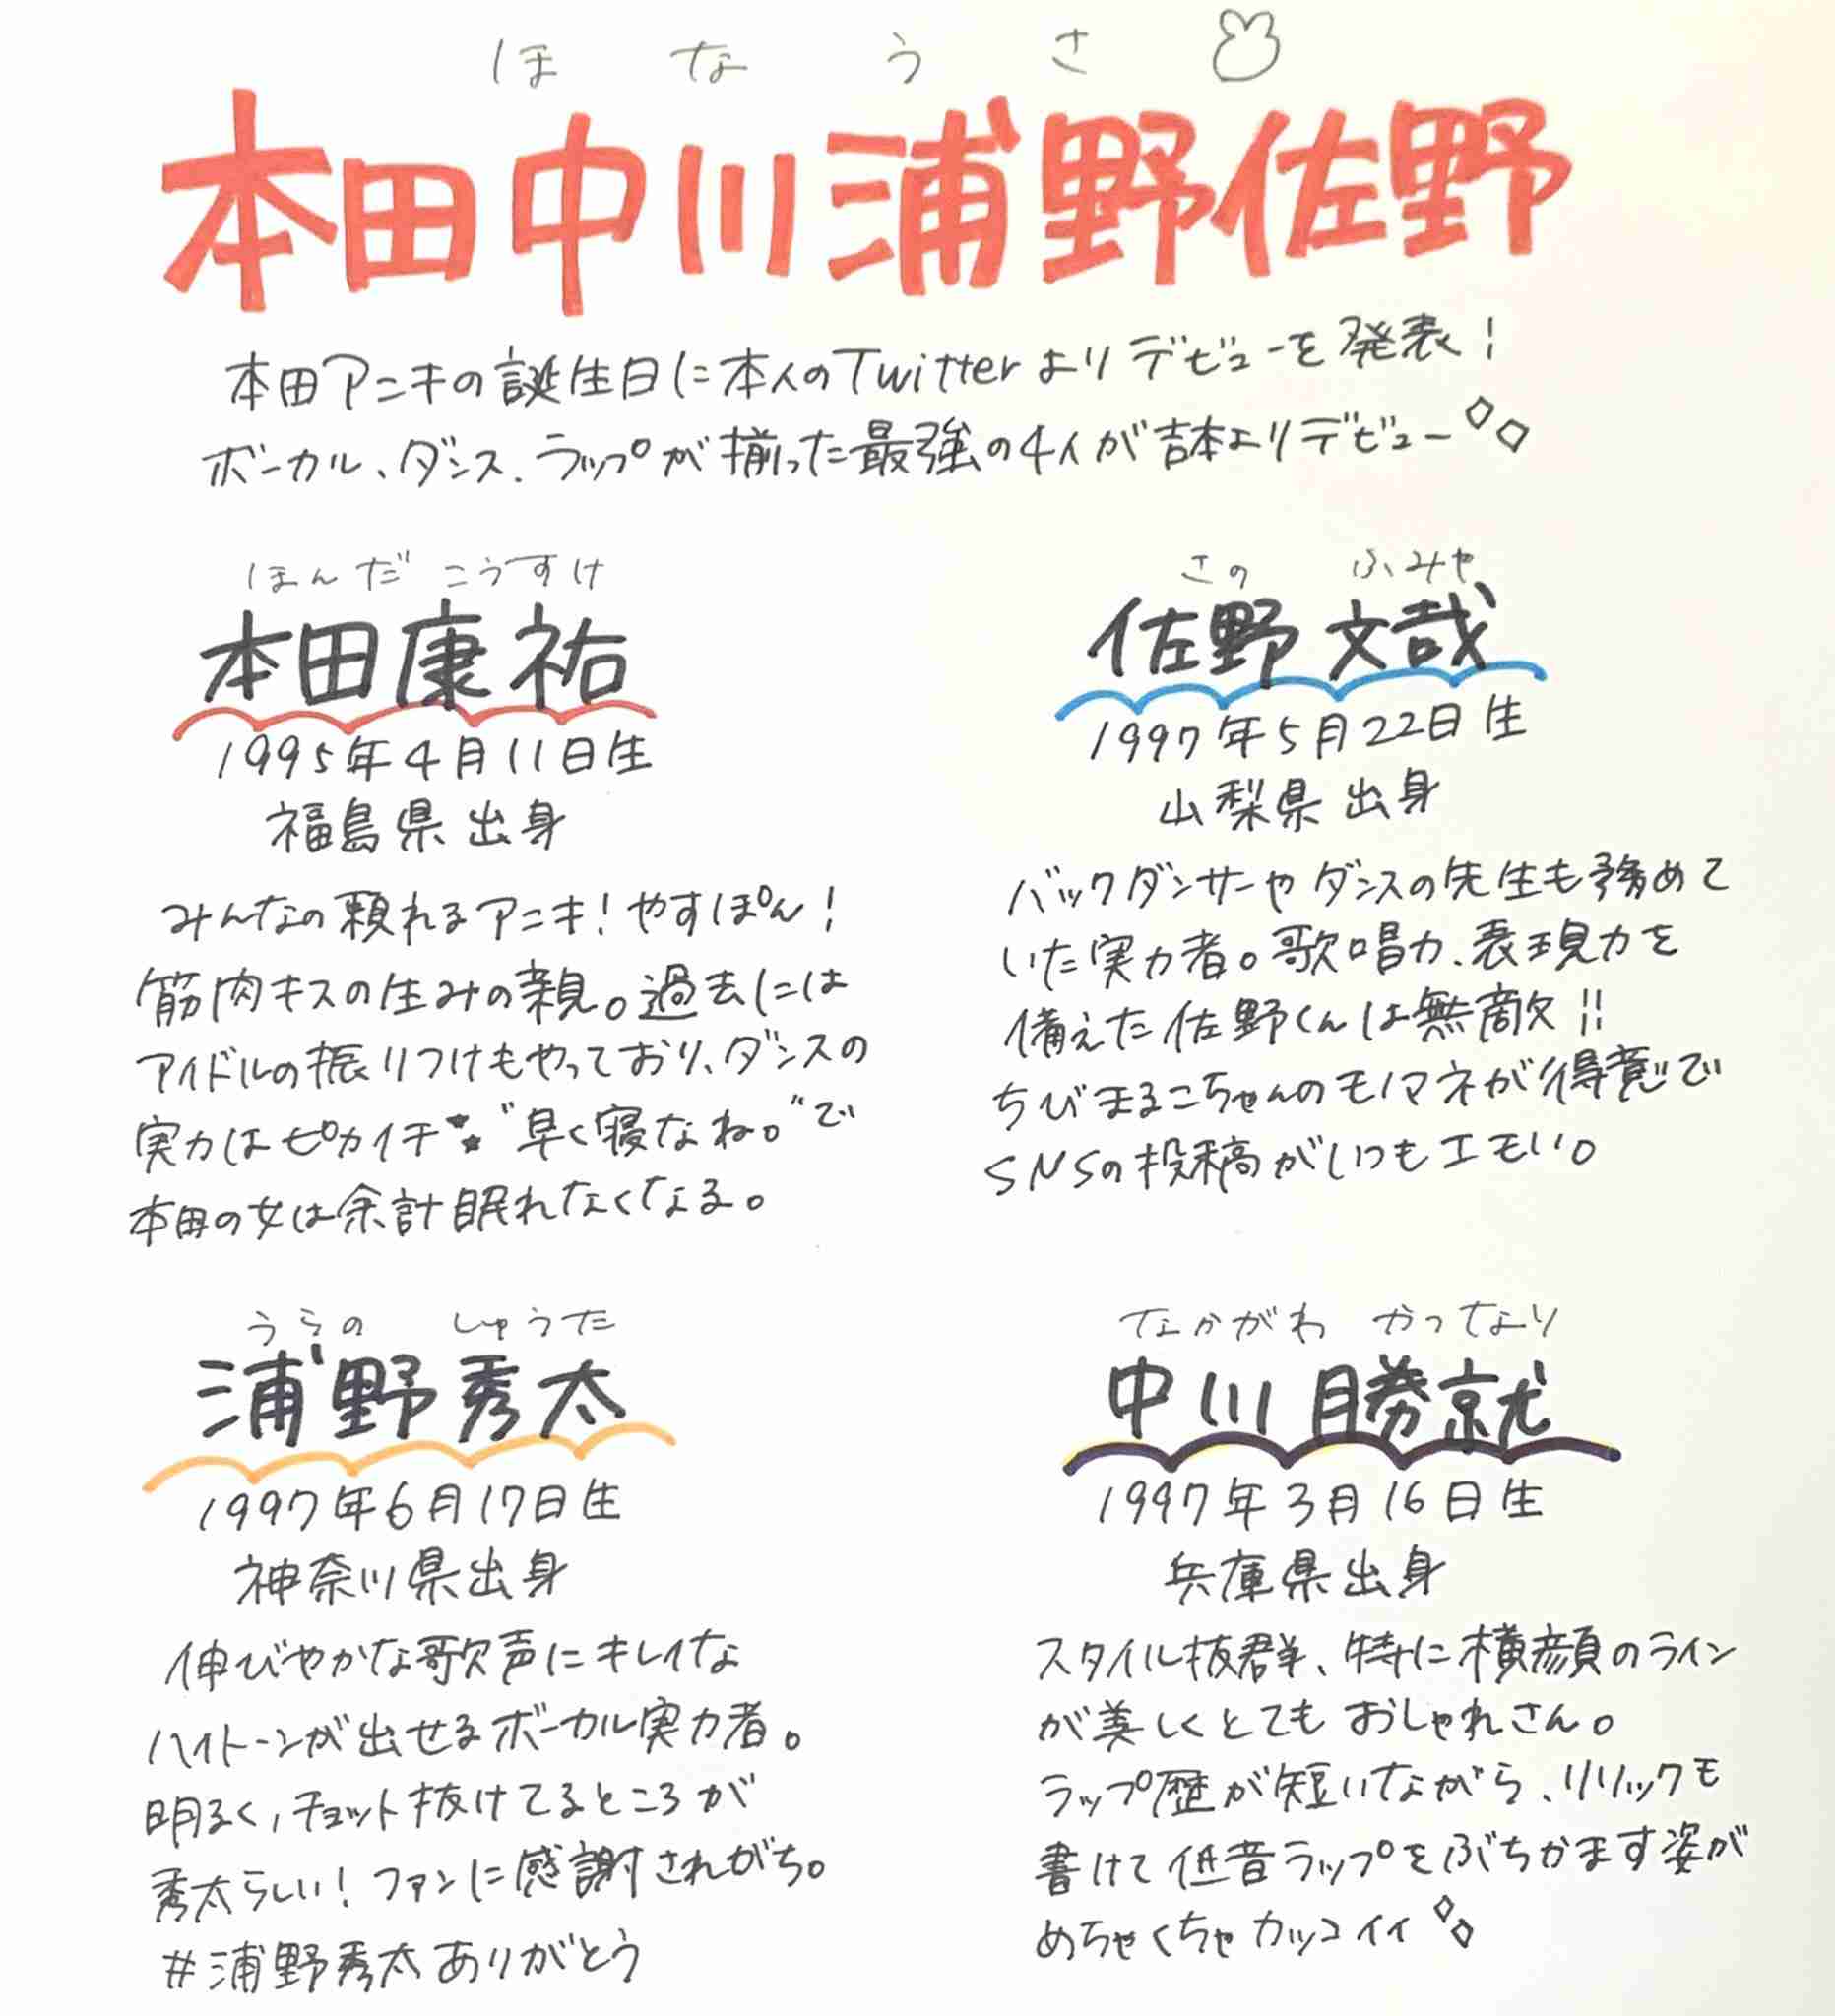 ほなうさ
本田中川浦野佐野
本田アニキの誕生日に本人のTwitterよりデビューを発表!
ボーカル、ダンス、ラップが揃った最強の4人が吉本よりデビュー
ほんだ こうすけ
本田康祐
1995年4月11日生
福島県出身
みんなの頼れるアニキ!やすぽん!
筋肉キスの生みの親。過去には
アイドルの振りつけもやっており、ダンスの
実力はピカイチ"早く寝なね。"で
本田の女は余計眠れなくなる。
さの ふみや
佐野文哉
1997年5月22日生
山梨県出身
バックダンサーやダンスの先生も務めて
いた実力者。歌唱力、表現力を
備えた佐野くんは無敵!!
ちびまるこちゃんのモノマネが得意で
SNSの投稿がいつもエモい。
うらの しゅうた
浦野秀太
1997年6月17日生
神奈川県出身
伸びやかな歌声にキレイな
ハイトーンが出せるボーカル実力者。
明るく,チョット抜けてるところが
秀太らしい!ファンに感謝されがち。
#浦野秀太ありがとう
なかがわ かつなり
中川勝就
1997年3月16日生
兵庫県出身
スタイル抜群、特に横顔のライン
が美しくとてもおしゃれさん。
ラップ歴が短いながら、リリックも
書けて低音ラップをぶちかます姿が
めちゃくちゃカッコイイ